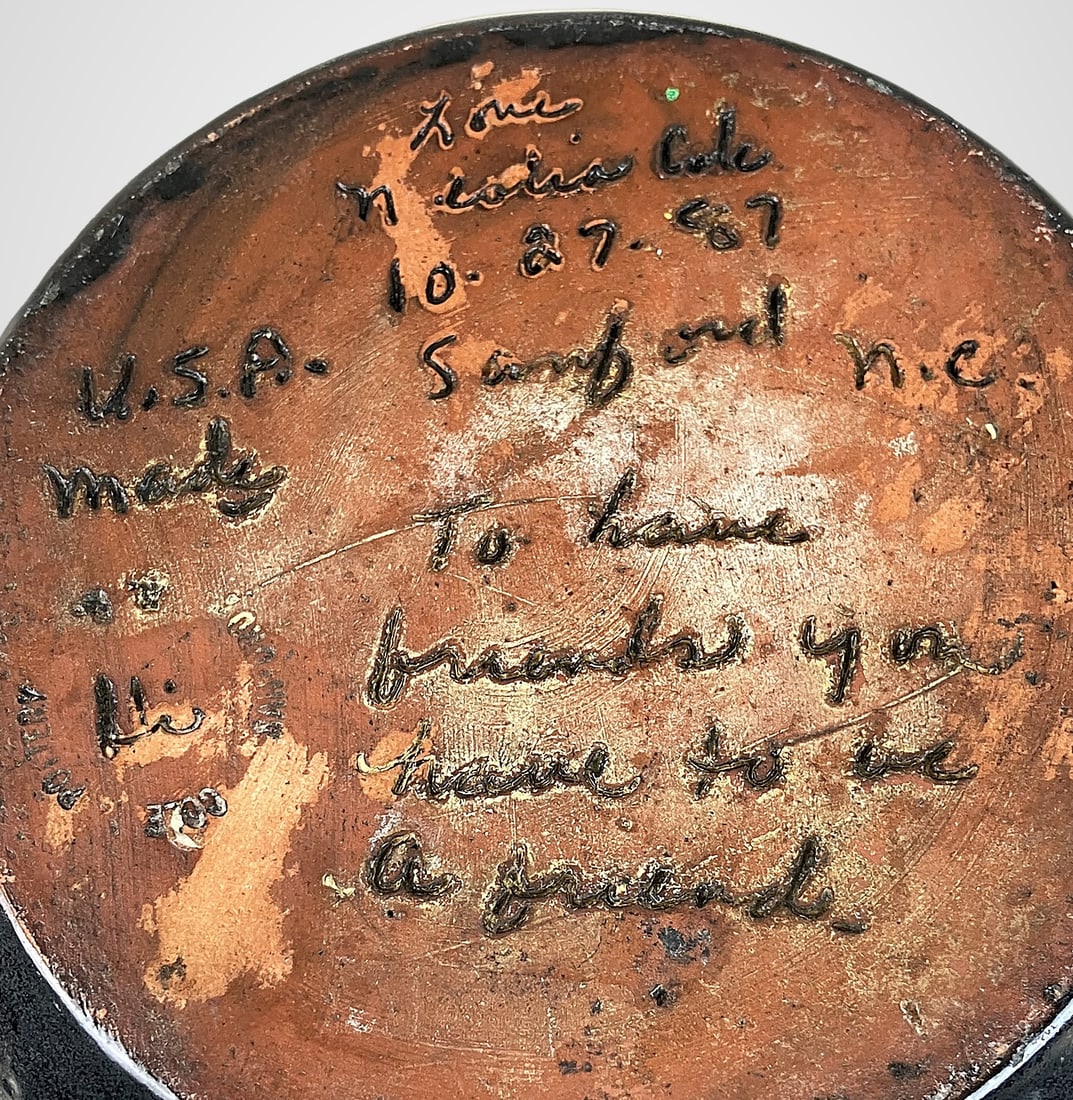 Love
Neolia Cole
10.27.87
U.S.A. Sanford N.C.
made
To have
friends you
Hi
have to be
A friend
POTTERY